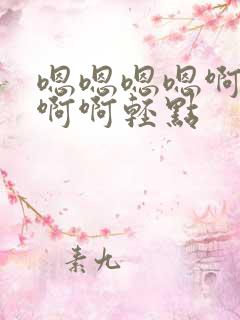 嗯嗯嗯嗯啊
啊啊轻點
素九